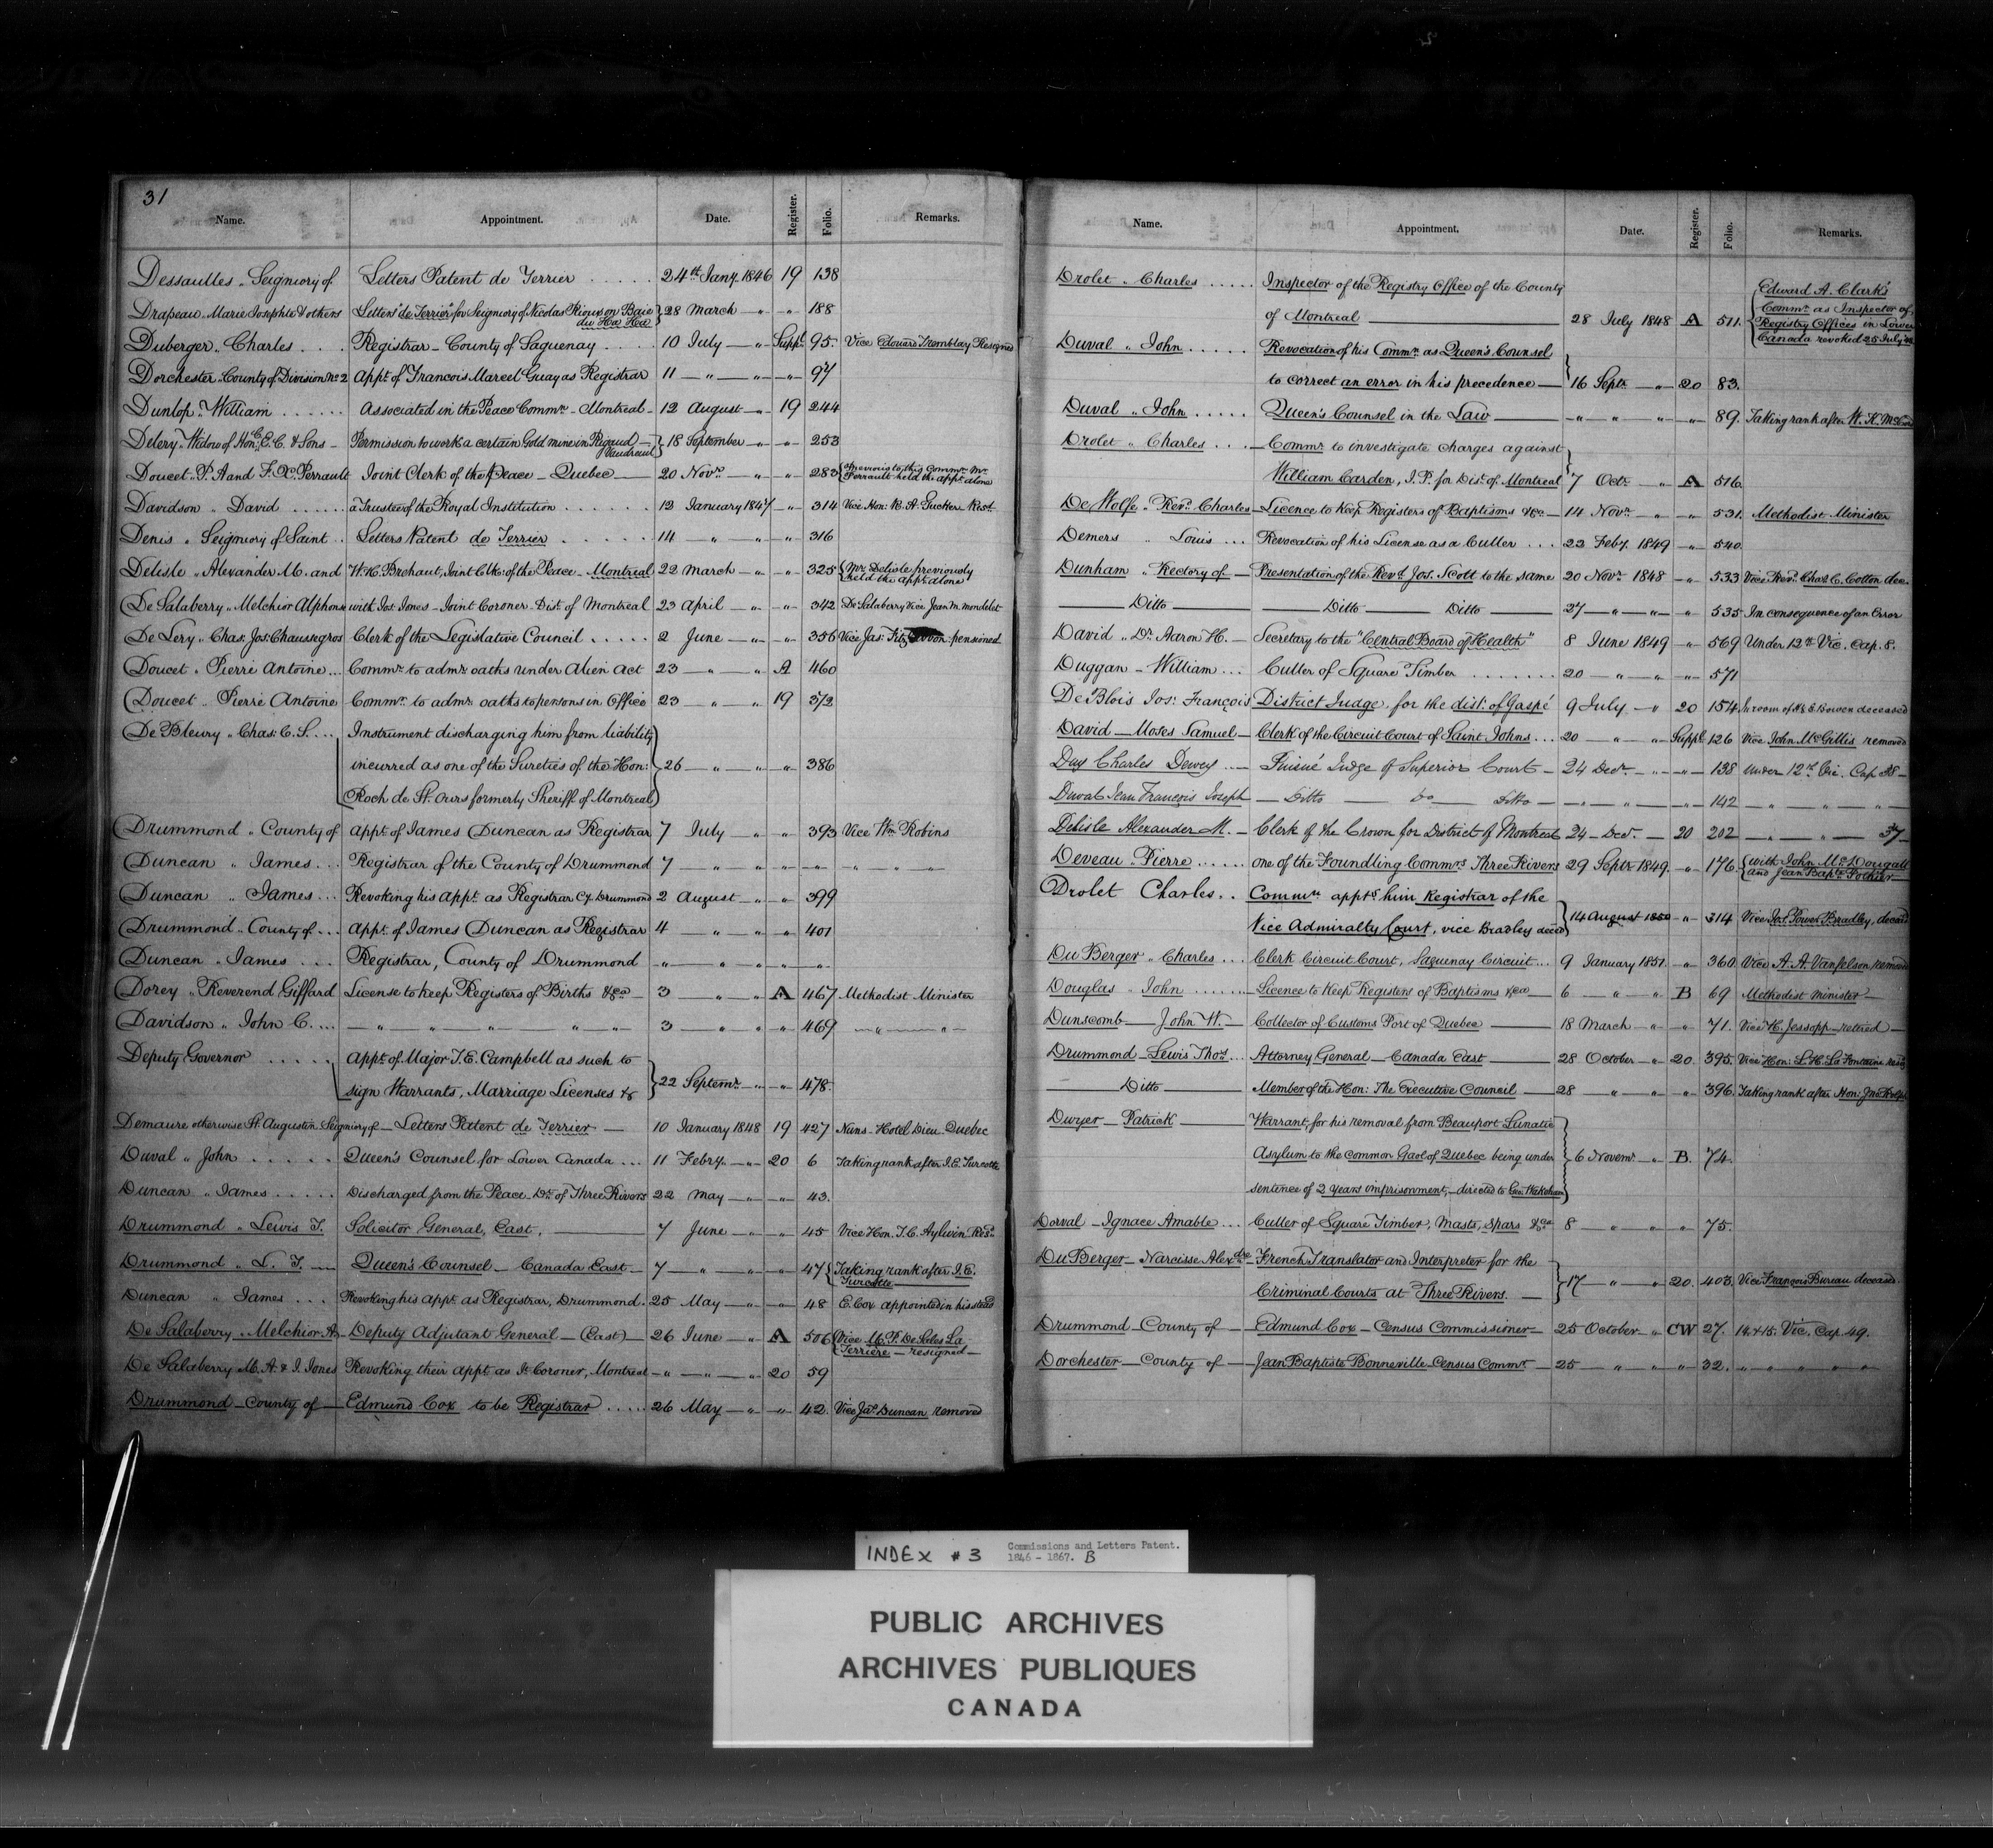 31
Name. Appointment. Date. Register. Folio. Remarks.
Dessaulles „ Seigniory of Letters Patent de Terrier ..... 24th Jany. 1846 19 138
Drapeau „ Marie Josephte & others Letters "de Terrier" for Seigniory of Nicolas Rioux on Baie } 28 March — „ — „ 188
du Ha Ha
Duberger „ Charles .... Registrar — County of Saguenay .... 10 July — „ Suppt. 95. Vice Edouard Tremblay Resigned
Dorchester „ County of Division No 2 Appt. of Francois Marcel Guay as Registrar 11 — „ — „ — „ 97
Dunlop „ William ...... Associated in the Peace Commn. — Montreal — 12 August — „ 19 244
Delery „ Widow of Hon: C. E. C. & Sons — Permission to work a certain Gold mine in Rigaud — } 18 September — „ — „ 253
Vaudreuil
Doucet „ P. A and F. X. Perrault Joint Clerk of the Peace — Quebec — 20 Novr. — „ „ 283 { Previous to this Commn. Mr.
Perrault held the appt. alone
Davidson „ David ...... a Trustee of the Royal Institution ...... 12 January 1847 — „ 314 Vice Hon: R. A. Tucker Resd.
Denis „ Seigniory of Saint .. Letters Patent de Terrier ..... 14 „ — „ — „ 316
Delisle „ Alexander M. and W. H. Brehaut, Joint Clk: of the Peace — Montreal 22 March — „ — „ 325 { Mr. Delisle previously
held the appt. alone
De Salaberry „ Melchior Alphonse with Jos: Jones — Joint Coroner — Dist. of Montreal 23 April — „ — „ 342 De Salaberry Vice Jean M. Mondelet
De Lery „ Chas: Jos: Chaussegros Clerk of the Legislative Council ..... 2 June — „ — „ 356 Vice Jas: Fitz Gibbon: pensioned
Doucet „ Pierre Antoine ... Commn. to admr. oaths under Alien Act 23 — „ — „ A 460
Doucet „ Pierre Antoine Commn. to admr. oaths to persons in Office 23 „ — „ 19 372
De Bleury „ Chas: C. S. ... Instrument discharging him from liability
incurred as one of the Sureties of the Hon: } 26 — „ — „ „ 386
Roch de St. Ours formerly Sheriff of Montreal
Drummond „ County of Appt. of James Duncan as Registrar 7 July — „ „ 393 Vice Wm. Robins
Duncan „ James ... Registrar of the County of Drummond 7 „ — „ „ — „ — „ „ „
Duncan „ James ... Revoking his Appt. as Registrar Cy. Drummond 2 August — „ „ 399
Drummond „ County of ... Appt. of James Duncan as Registrar 4 „ — „ „ 401
Duncan „ James ... Registrar, County of Drummond „ „ — „ „ „
Dorey „ Reverend Giffard License to keep Registers of Births &ca — 3 „ — „ A 467 Methodist Minister
Davidson „ John C. ... — „ „ „ „ „ — 3 — „ — „ „ 469 — „ — „ —
Deputy Governor ..... Appt. of Major T. E. Campbell as such to
sign Warrants, Marriage Licenses &c } 22 Septemr. — „ — „ 478.
Demaure otherwise St. Augustin Seigniory of — Letters Patent de Terrier — 10 January 1848 19 427 Nuns — Hotel Dieu — Quebec
Duval „ John ..... Queen's Counsel for Lower Canada ... 11 Febry. — „ 20 6 Taking rank after J. E. Turcotte
Duncan „ James ..... Discharged from the Peace — Dt. of Three Rivers 22 May — „ — „ 43.
Drummond „ Lewis T. Solicitor General, East, — 7 June — „ „ 45 Vice Hon. T. C. Aylwin Resd.
Drummond „ L. T. — Queen's Counsel — Canada East — 7 — „ — „ — „ 47 { Taking rank after J. E.
Turcotte
Duncan „ James ... Revoking his appt. as Registrar, Drummond. 25 May — „ — „ 48 E. Cox appointed in his stead
De Salaberry „ Melchior A. — Deputy Adjutant General — (East) — 26 June — „ A 506 { Vice M. P. De Sales La
Terriere — resigned —
De Salaberry M. A. & J. Jones Revoking their appt. as Jt. Coroner, Montreal — „ — „ — „ 20 59
Drummond — County of — Edmund Cox to be Registrar ..... 26 May — „ — „ 42. Vice Jas. Duncan removed
Name. Appointment. Date. Register. Folio. Remarks.
Drolet „ Charles ..... Inspector of the Registry Office of the County
of Montreal — 28 July 1848 A 511. { Edward A. Clark's
Commn. as Inspector of
Registry Offices in Lower
Canada revoked 25 July
Duval „ John ..... Revocation of his Commn. as Queen's Counsel
to correct an error in his precedence — } 16 Septr. — „ 20 83.
Duval „ John ..... Queen's Counsel in the Law — „ „ — „ „ 89. Taking rank after W. K. McCord
Drolet „ Charles ... Commn. to investigate charges against
William Carden, J. P. for Dist. of Montreal } 7 Octr. — „ A 516
De Wolfe „ Revd. Charles — Licence to keep Registers of Baptisms &ca — 14 Novr. — „ — „ 531. Methodist Minister
Demers „ Louis ... Revocation of his License as a Culler ... 22 Feby. 1849 — „ 540.
Dunham „ Rectory of — Presentation of the Revd. Jos. Scott to the same 20 Novr. 1848 — „ 533 Vice Revd. Chas. C. Cotton dec.
— Ditto — Ditto — Ditto — 27 — „ — „ „ 535 In consequence of an Error
David „ Dr. Aaron H. — Secretary to the "Central Board of Health" 8 June 1849 — „ 569 Under 12th Vic. Cap. 8.
Duggan — William ... Culler of Square Timber ....... 20 — „ — „ — „ 571
De Blois Jos: François District Judge, for the dist: of Gaspé 9 July — „ 20 154 In room of deceased
David — Moses Samuel — Clerk of the Circuit Court of Saint Johns ... 20 — „ — „ Suppt. 126 Vice John McGillis removed
Day Charles Dewey ... Puisné Judge of Superior Court — 24 Decr. — „ — „ 138 Under 12th Vic. Cap 38 —
Duval Jean François Joseph — Ditto — Do — Ditto — „ — „ — — „ 142 — „ — „ — „ —
Delisle Alexander M. — Clerk of the Crown for District of Montreal 24 — Decr. — 20 202 — „ — „ — 37
Deveau „ Pierre ..... one of the Foundling Commrs. Three Rivers 29 Septr. 1849. — „ 176. { with John McDougall
and Jean Bapte. Pothier
Drolet Charles .. Commn. apptg. him Registrar of the
Vice Admiralty Court, vice Bradley decd. } 14 August 1850 — „ 314 Vice Power Bradley, decd.
Du Berger „ Charles ... Clerk Circuit Court, Saguenay Circuit ... 9 January 1851. — „ 360. Vice A. A. Vanfelson removed
Douglas „ John ...... Licence to keep Registers of Baptisms &ca — 6 „ — „ B 69 Methodist minister —
Dunscomb — John W. — Collector of Customs Port of Quebec — 18 March — „ „ 71. Vice H. Jessopp — retired —
Drummond — Lewis Thos. ... Attorney General — Canada East — 28 October — „ 20. 395. Vice Hon: L. H. La Fontaine
— Ditto — Member of the Hon: The Executive Council — 28 „ — „ „ 396. Taking rank after Hon: Jno. Rolph
Dwyer — Patrick — Warrant, for his removal from Beauport Lunatic
Asylum to the common Gaol of Quebec being under } 6 Novemr. „ B. 74.
sentence of 2 years imprisonment, — directed to Geo. Wakeham
Dorval — Ignace Amable ... Culler of Square Timber, Masts, Spars &ca 8 „ — „ „ 75.
Du Berger — Narcisse Alexdre. — French Translator and Interpreter for the
Criminal Courts at Three Rivers. — } 17 „ — „ 20. 403. Vice François Bureau deceased
Drummond — County of — Edmund Cox — Census Commissioner — 25 October — „ CW 27. 14 & 15. Vic. Cap. 49.
Dorchester — County of — Jean Baptiste Bonneville — Census Commr. — 25 — „ — „ „ 32. „ „ „ „ „
INDEX # 3 Commissions and Letters Patent.
1846 - 1867. B
PUBLIC ARCHIVES
ARCHIVES PUBLIQUES
CANADA